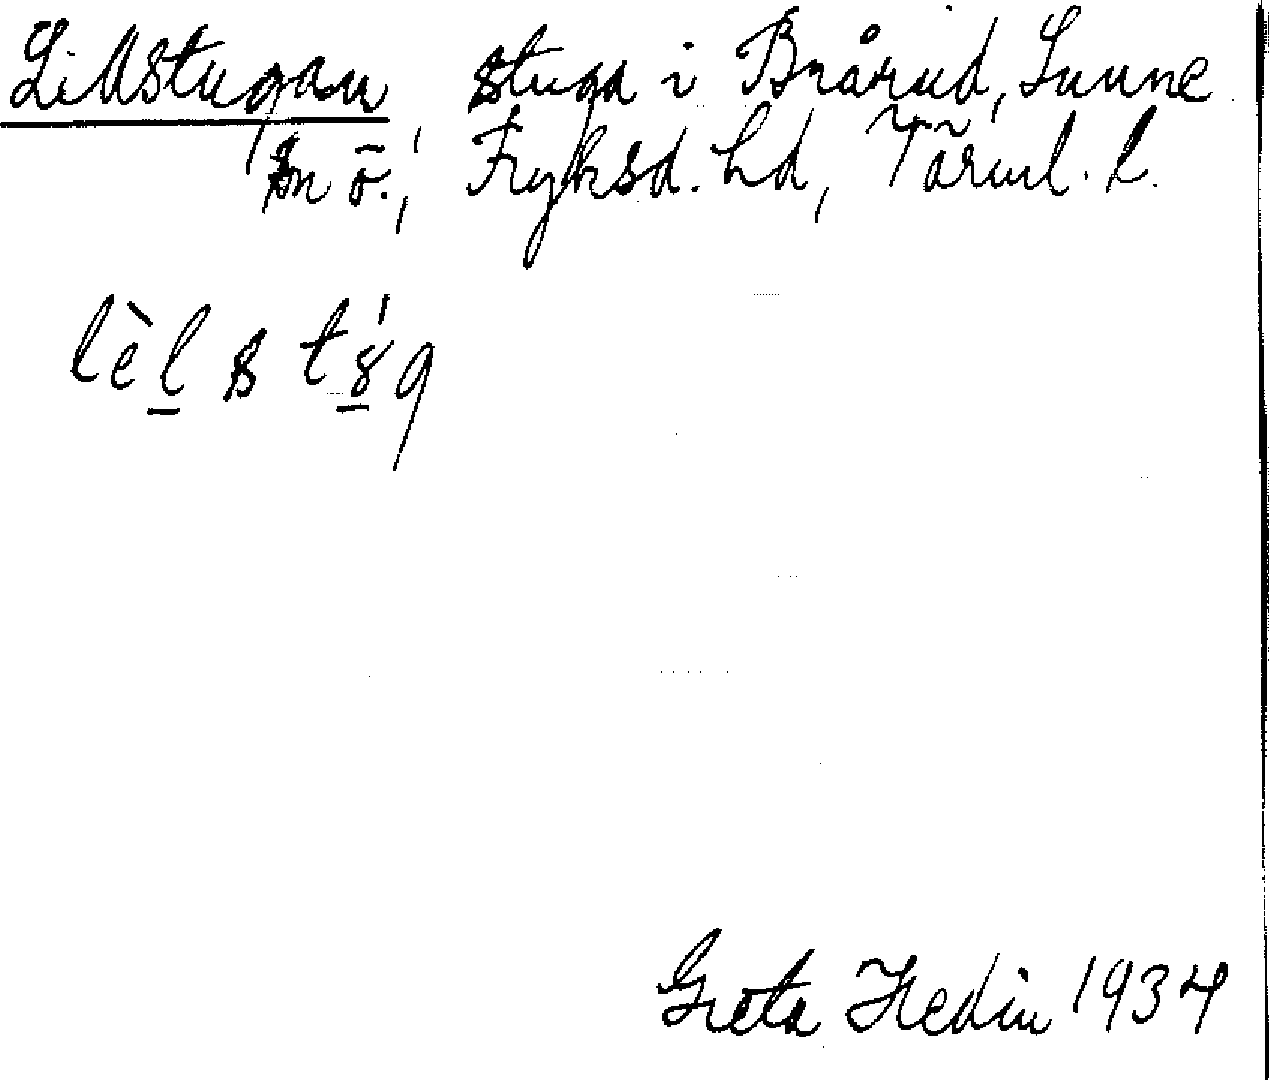 Lillstugan, stuga i Brårud, Sunne
sn ö., Fryksd. hd, Värml. l.
lèlstɞ́g
Greta Hedin 1934